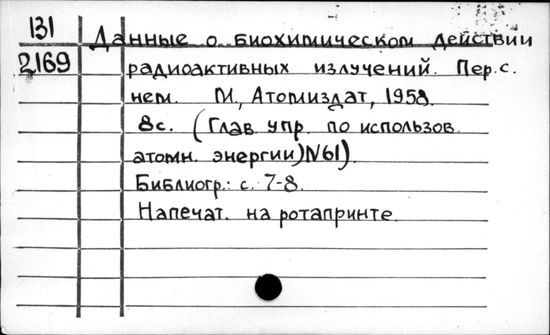 131
2169
Данные о биохимическом действии
радиоактивных излучений. Пер. с.
нем. М., Атомиздат, 1958.
8с. (Глав. упр. по использов.
атомн. энергии)N61).
Библиогр.: с. 7-8.
Напечат. на ротапринте.